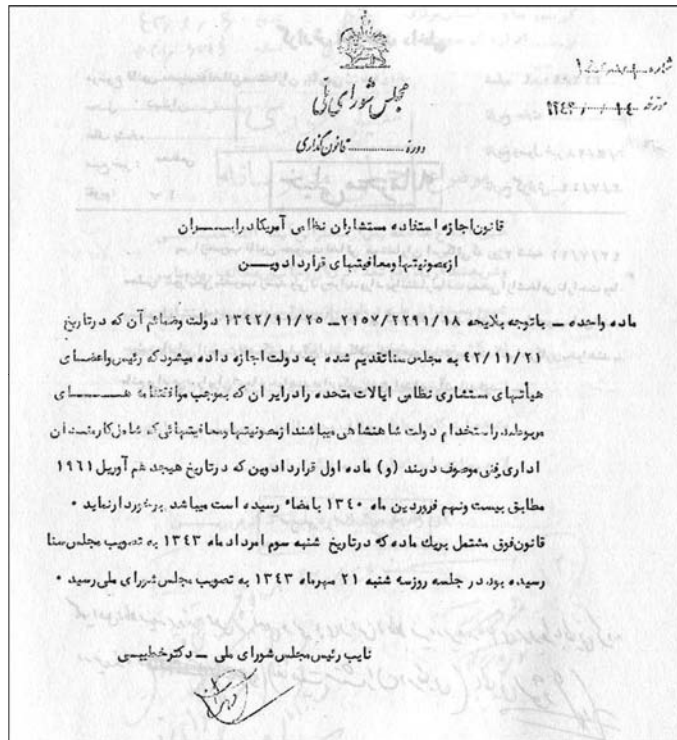 مجلس شورای ملی
دورهٔ ........ قانون گذاری
شماره
مورخه ۱۳۴۳/ /۱۴
قانون اجازه استفاده مستشاران نظامی آمریکا در ایـــــران
از مصونیتها و معافیتهای قرارداد ویـــن
ماده واحده ــ باتوجه بلایحه ۱۸/۲۲۹۱/۲۱۵۷ــ ۱۳۴۲/۱۱/۲۵ دولت وضمائم آن که در تاریخ
۴۲/۱۱/۲۱ به مجلس سنا تقدیم شده به دولت اجازه داده میشود که رئیس واعضـای
هیأتهای مستشاری نظامی ایالات متحده را در ایران که بموجب موافقتنامه هـــــای
مربوطه در استخدام دولت شاهنشاهی میباشند از مصونیتها و معافیتهائی که شامل کارمنـدان
اداری وفنی موصوف در بند (و) ماده اول قرارداد وین که در تاریخ هیجدهم آوریل ۱۹۶۱
مطابق بیست ونهم فروردین ماه ۱۳۴۰ بامضاء رسیده است میباشد برخوردار نماید ۰
قانون فوق مشتمل بریک ماده که در تاریخ شنبه سوم امرداد ماه ۱۳۴۳ به تصویب مجلس سنا
رسیده بود در جلسه روز سه شنبه ۲۱ مهرماه ۱۳۴۳ به تصویب مجلس شورای ملی رسید ۰
نایب رئیس مجلس شورای ملی ــ دکتر خطیبـی